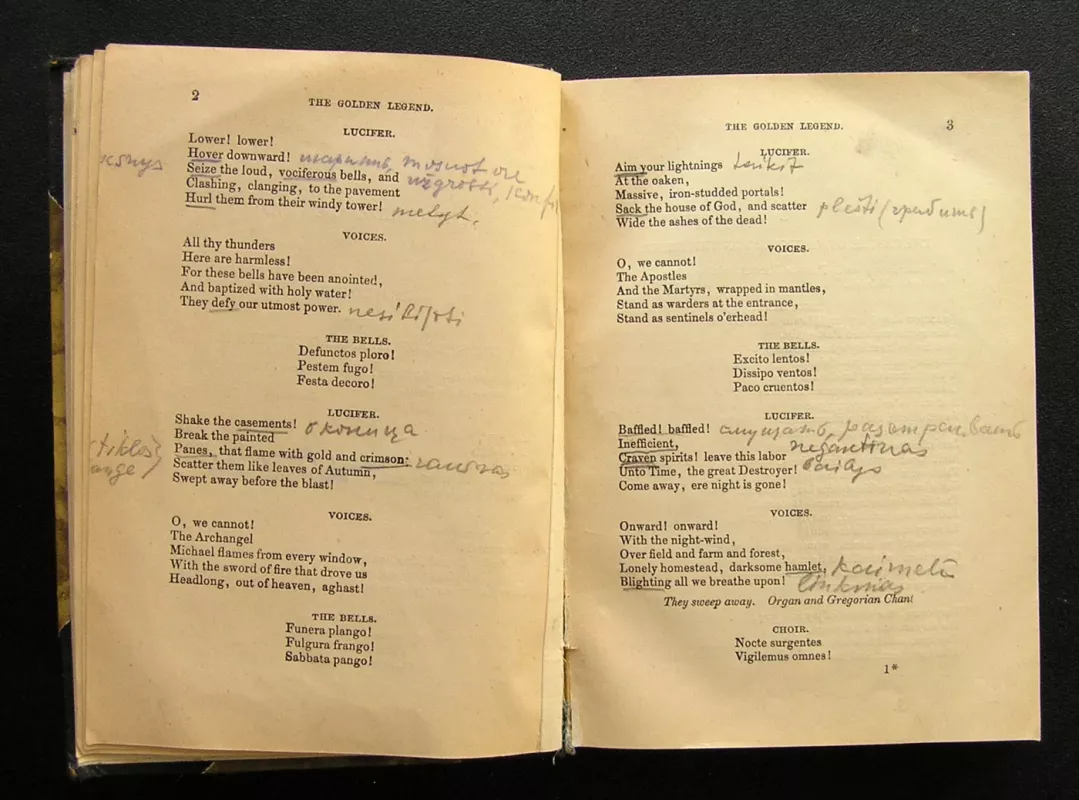 2
THE GOLDEN LEGEND.
LUCIFER.
Lower! lower!
Hover downward!
Seize the loud, vociferous bells, and
Clashing, clanging, to the pavement
Hurl them from their windy tower!
VOICES.
All thy thunders
Here are harmless!
For these bells have been anointed,
And baptized with holy water!
They defy our utmost power.
THE BELLS.
Defunctos ploro!
Pestem fugo!
Festa decoro!
LUCIFER.
Shake the casements! оконица
Break the painted
Panes, that flame with gold and crimson:
Scatter them like leaves of Autumn,
Swept away before the blast!
VOICES.
O, we cannot!
The Archangel
Michael flames from every window,
With the sword of fire that drove us
Headlong, out of heaven, aghast!
THE BELLS.
Funera plango!
Fulgura frango!
Sabbata pango!
THE GOLDEN LEGEND.
3
LUCIFER.
Aim your lightnings
At the oaken,
Massive, iron-studded portals!
Sack the house of God, and scatter
Wide the ashes of the dead!
VOICES.
O, we cannot!
The Apostles
And the Martyrs, wrapped in mantles,
Stand as warders at the entrance,
Stand as sentinels o'erhead!
THE BELLS.
Excito lentos!
Dissipo ventos!
Paco cruentos!
LUCIFER.
Baffled! baffled!
Inefficient,
Craven spirits! leave this labor
Unto Time, the great Destroyer!
Come away, ere night is gone!
VOICES.
Onward! onward!
With the night-wind,
Over field and farm and forest,
Lonely homestead, darksome hamlet,
Blighting all we breathe upon!
They sweep away. Organ and Gregorian Chant
CHOIR.
Nocte surgentes
Vigilemus omnes!
1*